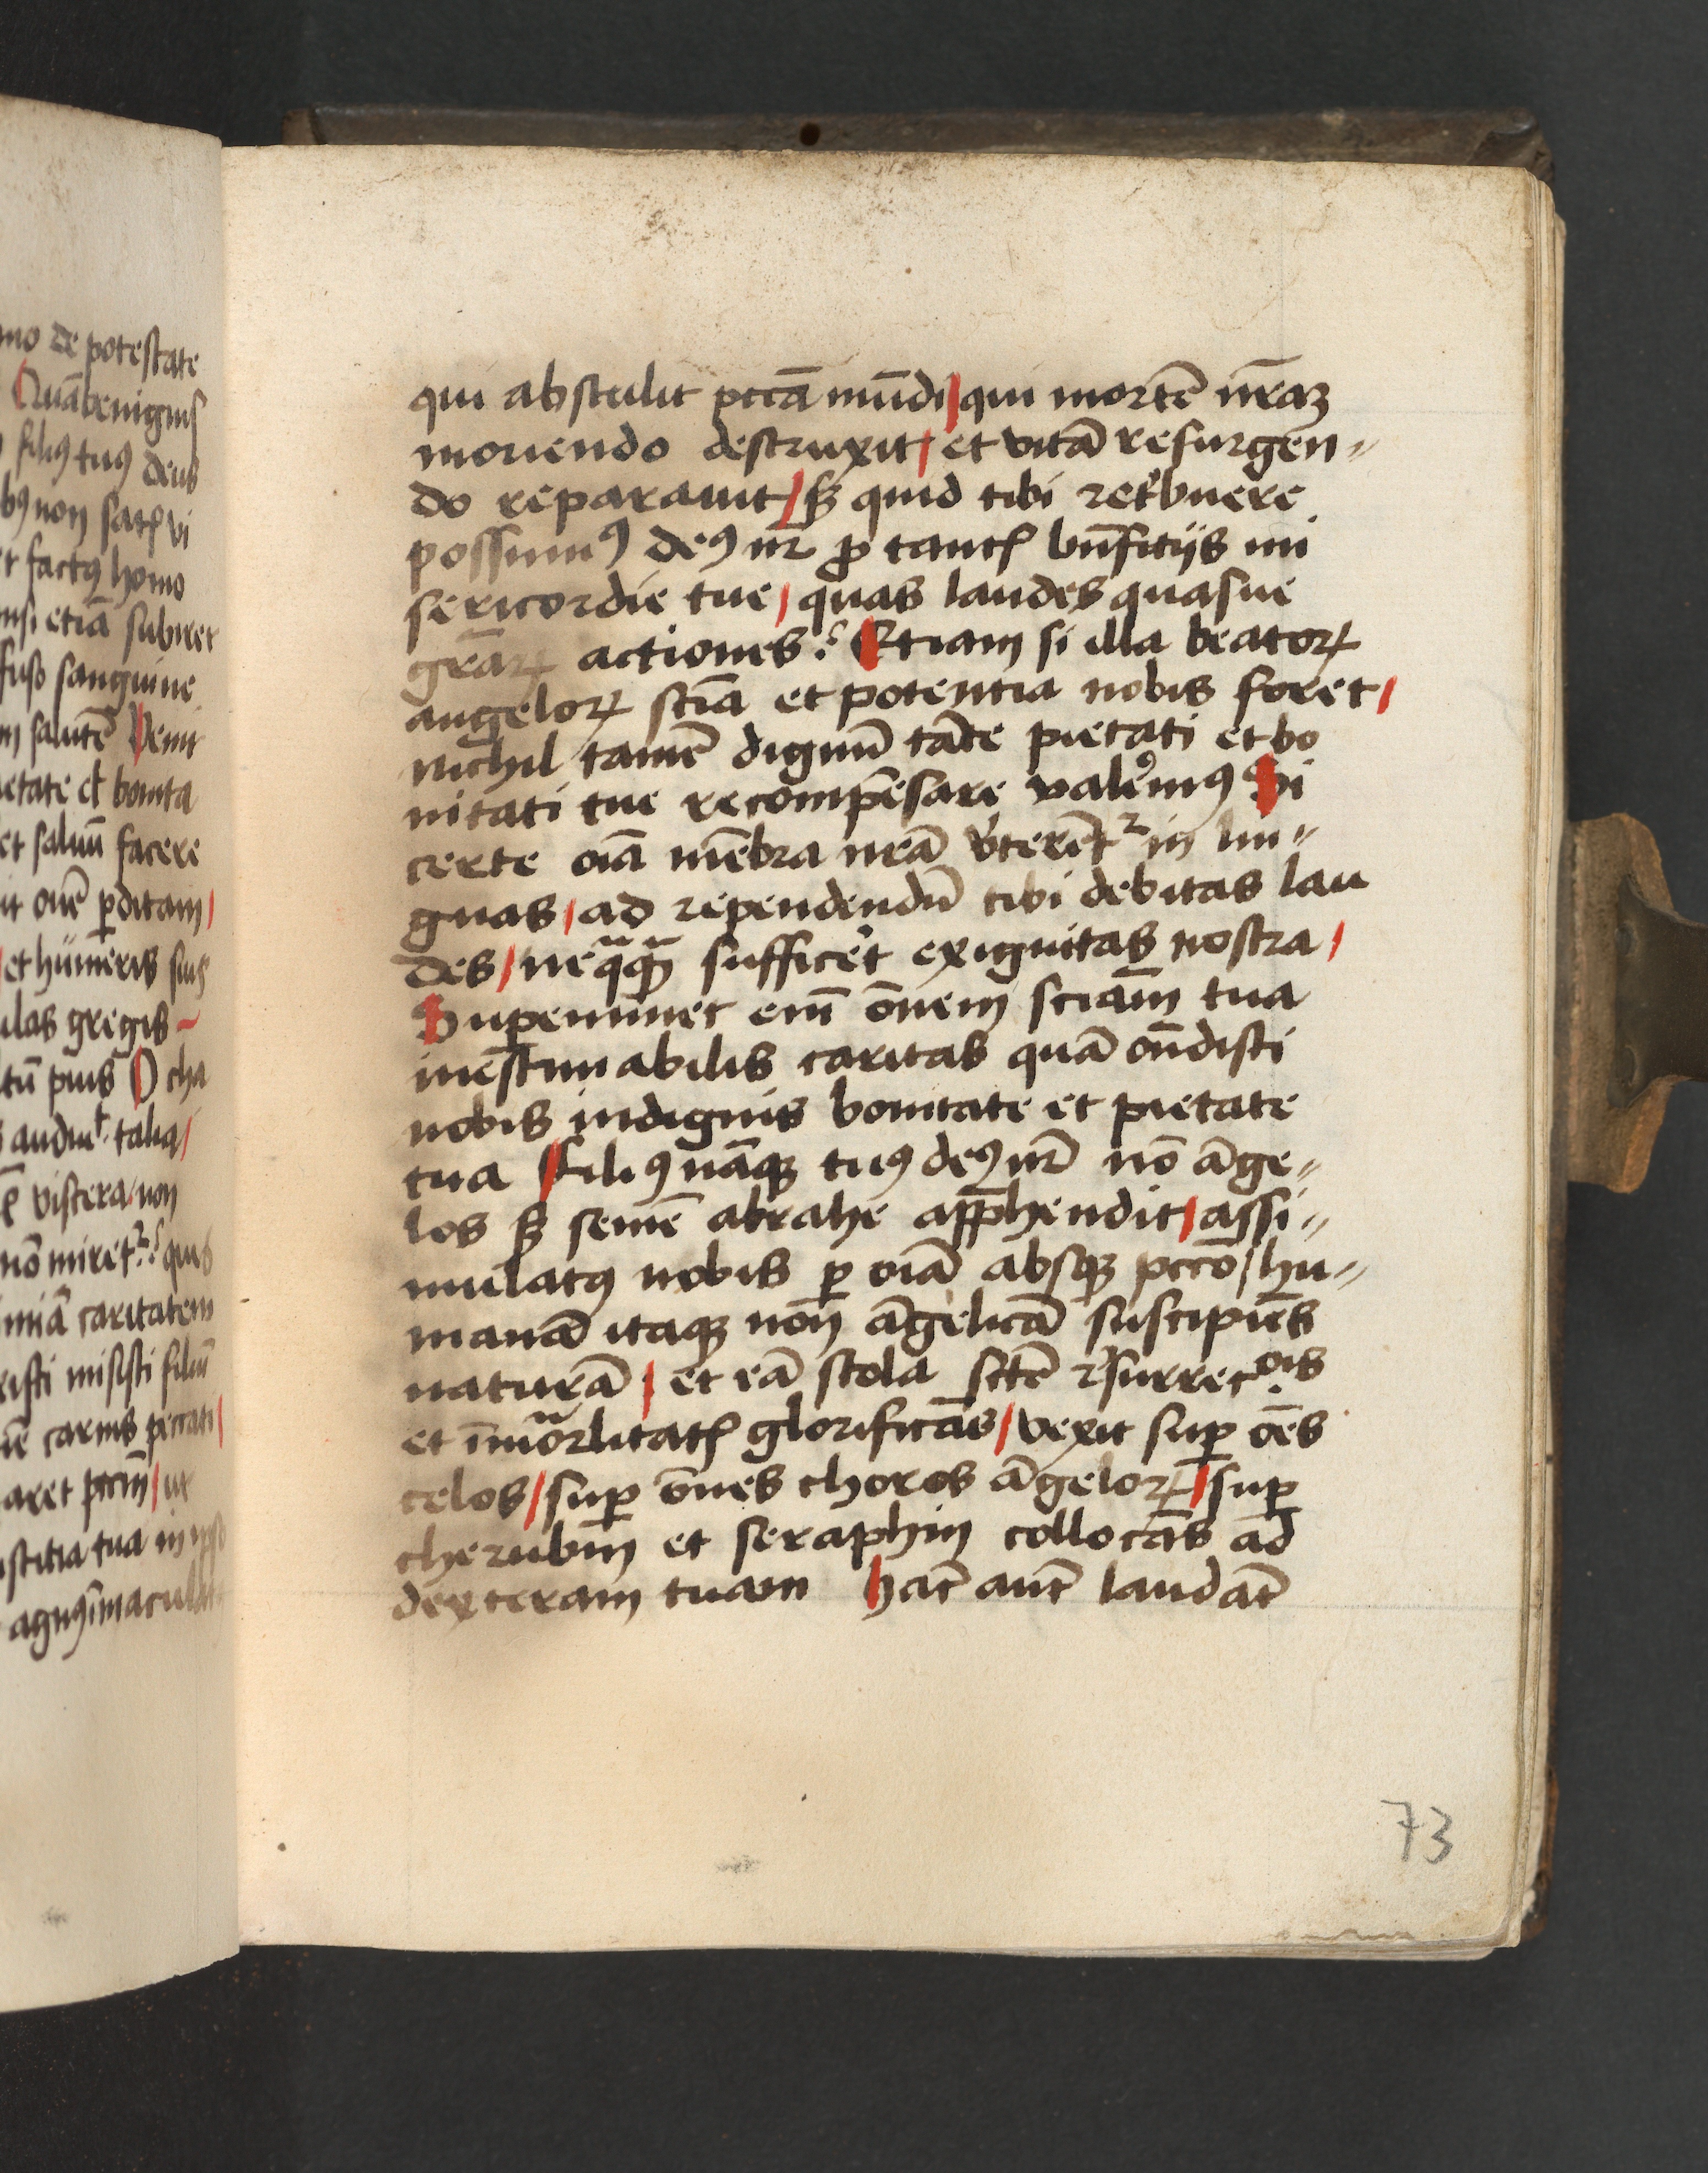 mo de potestate
Quā benignus
filiꝰ tuꝰ deus
bꝰ non satꝭ vi
factꝰ homo
nsi etiā subiret
fuso sanguine
salutē Venit
etate et bonita
et saluū facere
it ouē ꝑditam /
et humeris suis
ulas gregis ~
tū pius O cha
audiuit talia /
viscera non
nō miretᷣ? quis
imiā caritatem
risti misisti filiū
carnis peccati /
aret pccm̄ / ut
stitia tua in ipso
agnꝰ īmaculat
qui abstulit pccā mūdi / qui mortē nr̄aꝫ
moriendo destruxit / et vitā resurgen〃
do reparauit / sꝫ quid tibi ret'buere
possumꝰ deꝰ nr̄ ꝓ tantꝭ bn̄ficijs mi
sericordie tue / quas laudes quasue
gr̄aꝝ actiones? Etiam si illa beatoꝝ
angeloꝝ sciā et potentia nobis foret /
nichil tamē dignū tāte pietati et bo
nitati tue recompēsare valemꝯ Si
certe oīa mēbra nr̄ā v'terēt᷑ in lin〃
guas / ad rependendū tibi debitas lau
des / neqᷓqᷓꝫ sufficet exiguitas nostra /
Supereminet enī ōnem sciam̄ tua
inestimabilis caritas quā on̄disti
nobis indignis bonitate et pietate
tua Filiꝰ nāqꝫ tuꝰ deꝰ nr̄ nō āge〃
los sꝫ semē abrahe app̄hendit / assi〃
mulatꝰ nobis ꝑ oīā absqꝫ pccō / hu〃
manā itaqꝫ non āgelicā suscipiēs
naturā / et eā stola sctē rsurrecois
et īmorᷓlitatꝭ glorificās / vexit suꝑ oēs
celos / suꝑ ōnes choros āgeloꝝ / suꝑ
cherubin̄ et seraphin collocās ad
dexteram tuam hāc autē laudāt
73